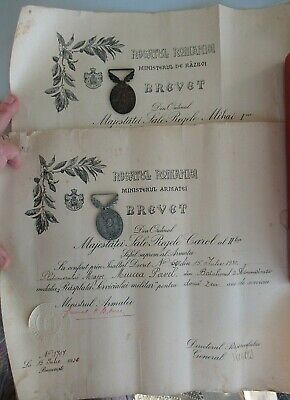 REGATUL ROMÂNIEI
MINISTERUL DE RĂZBOI
BREVET
Din Ordinul
Majestății Sale Regele Mihai I
REGATUL ROMÂNIEI
MINISTERUL ARMATEI
BREVET
Din Ordinul
Majestății Sale Regele Carol al II lea
Șeful suprem al Armatei
Sa conferit prin Înaltul Decret No din 15 Iulie 1930
Mircea Pavel din Batalionul 2
medalia „Răsplata Serviciului militar" pentru două zeci ani de serviciu
Ministrul Armatei
Directorul Personalului
General
No
La 15 Iulie 1930
București